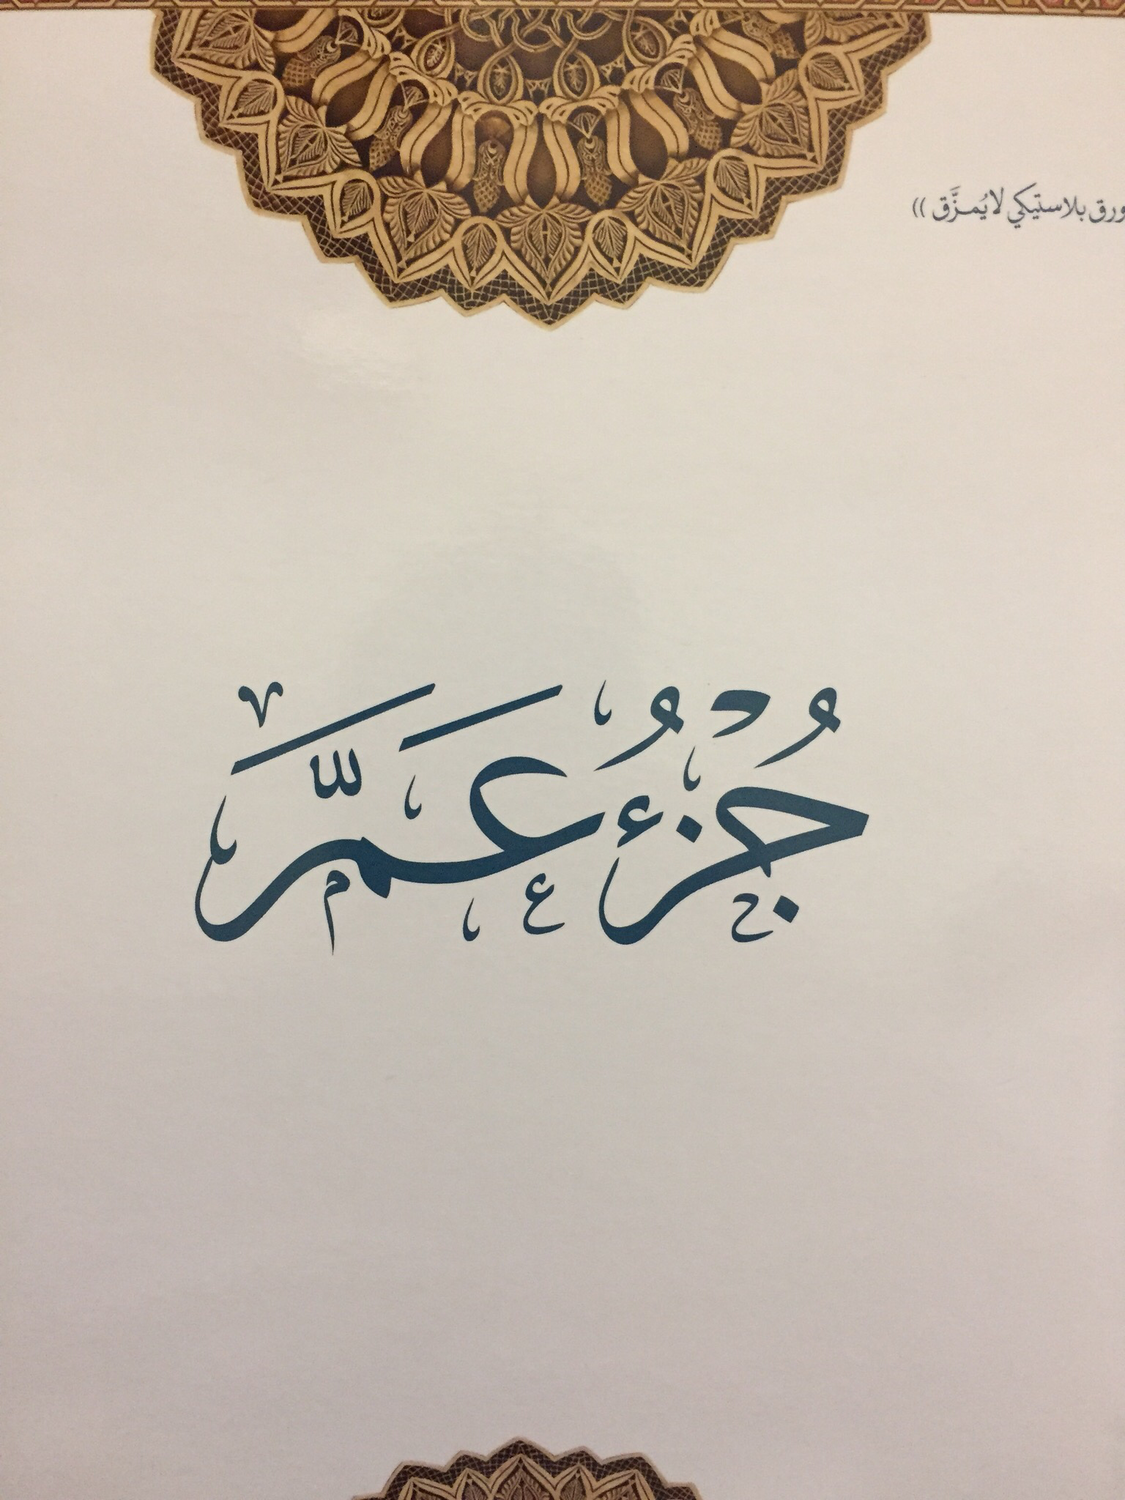 ورق بلاستيكي لا يُمزَّق ))
جُزْءُ عَمَّ